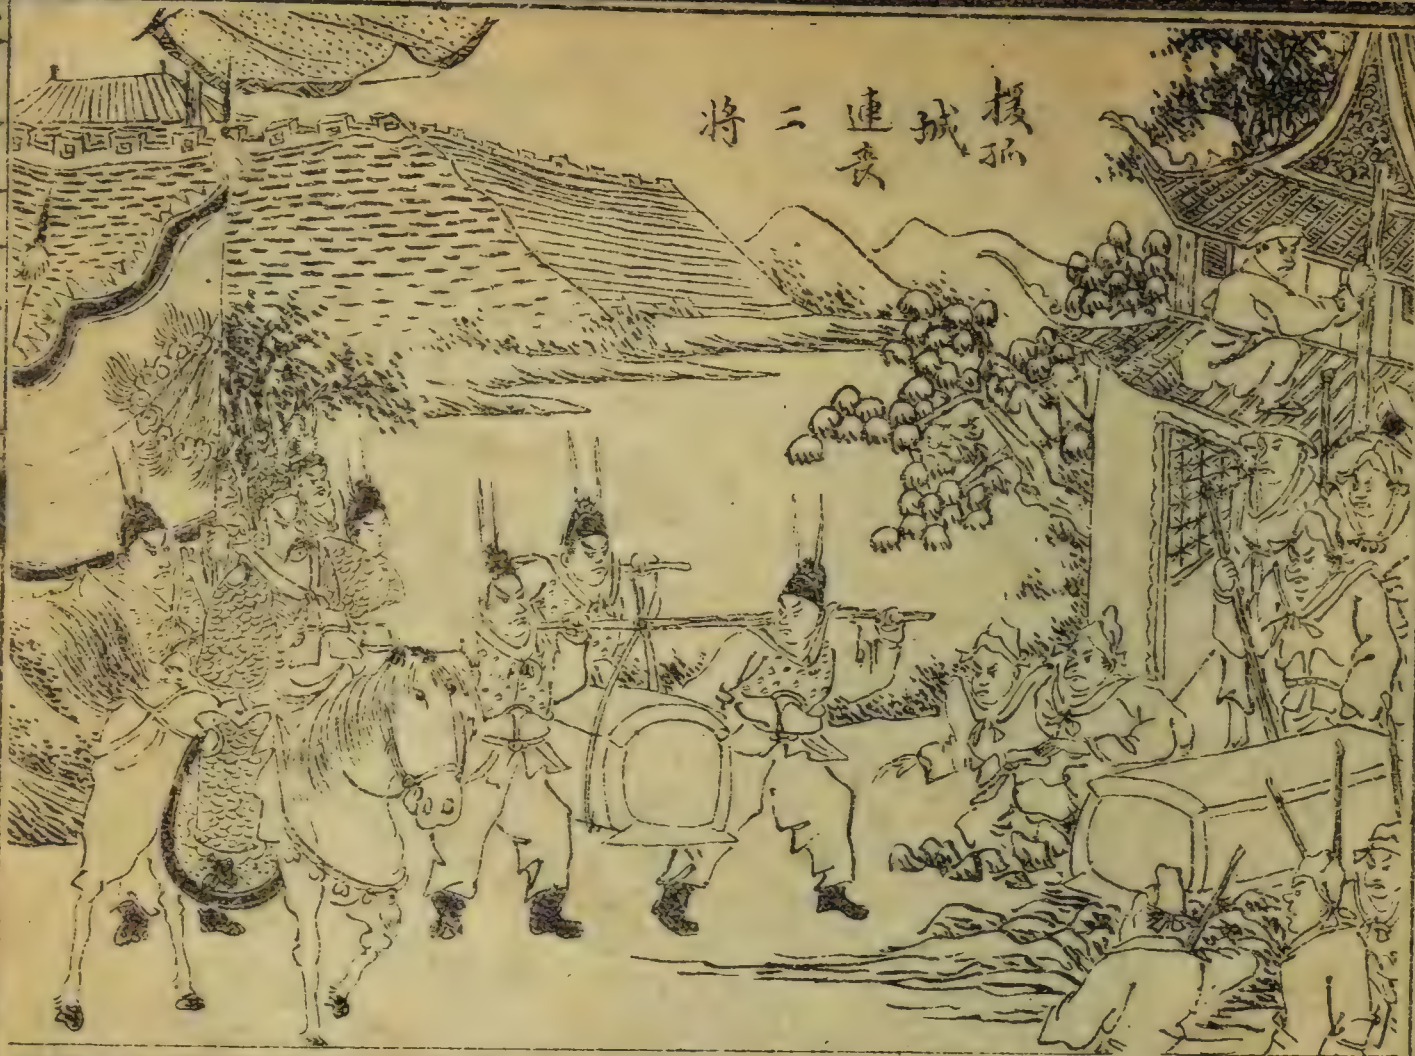 援孤
城
連喪
二
将